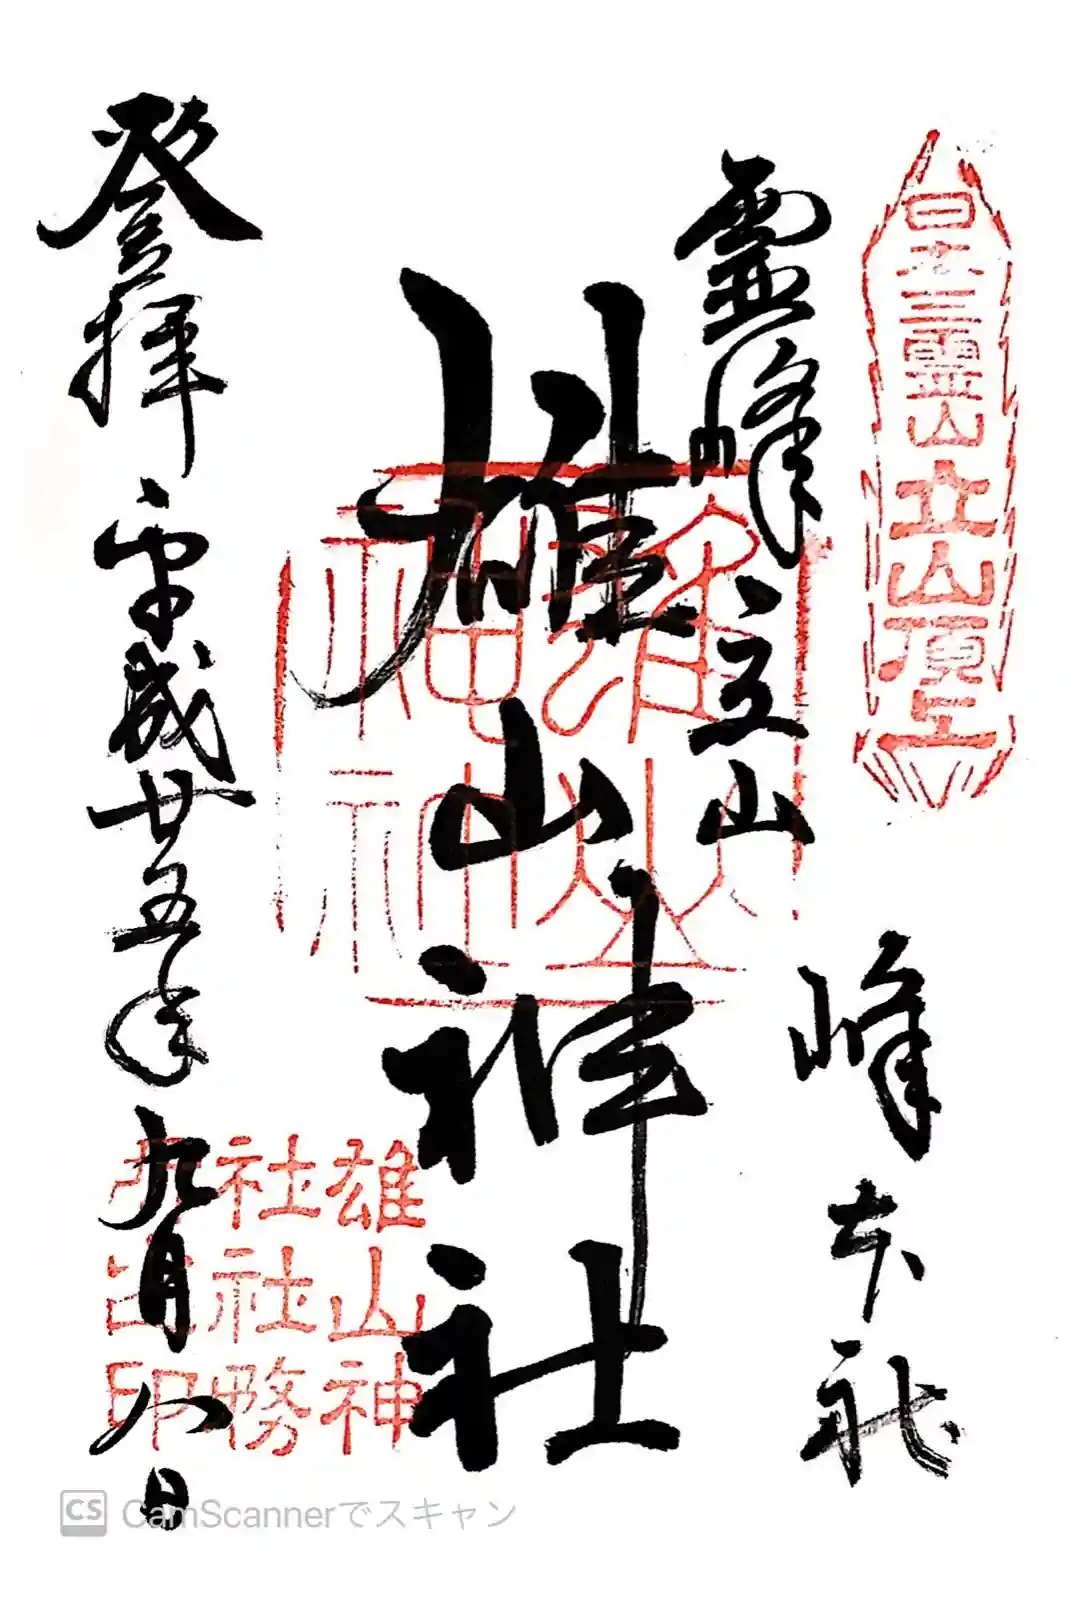 日本三霊山立山頂上
霊峰立山
峰本社
雄山神社
雄山
神社
雄山神
社社務
印
登拝 平成廿五年九月八日
CS CamScannerでスキャン